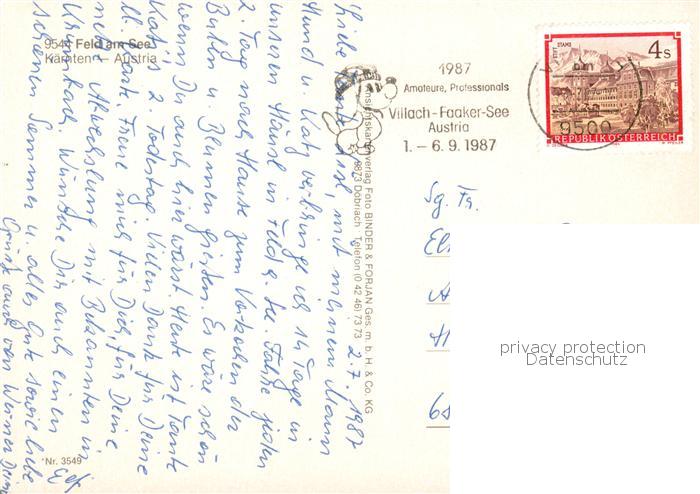 9544 Feld am See
Kärnten — Austria
1987
Amateure, Professionals
Villach-Faaker-See
Austria
1. – 6. 9. 1987
STIFT STAMS
4 S
REPUBLIK ÖSTERREICH
9500
Ansichtskartenverlag Foto BINDER & FORJAN Ges. m. b. H. & Co. KG
9873 Döbriach · Telefon (0 42 46) 73 73
2.7.1987
Liebe mit meinem Mann
Hund u. Katz verbringe ich 14 Tage in
unserem Häusl in Feld a. See. Fahre jeden
2. Tag nach Hause zum Vorkochen der
Buben u. Blumen gießen. Es wäre schön
wenn Du auch hier wärst. Heute ist Tante
2. Todestag. Vielen Dank für Deine
Freue mich für Dich, für Deine
Abwechslung mit Bekannten in
Wünsche Dir auch einen
schönen Sommer u. alles Gute sowie liebe
Grüße auch von Werner Deine
Nr. 3549
Sg. Fr.
privacy protection
Datenschutz